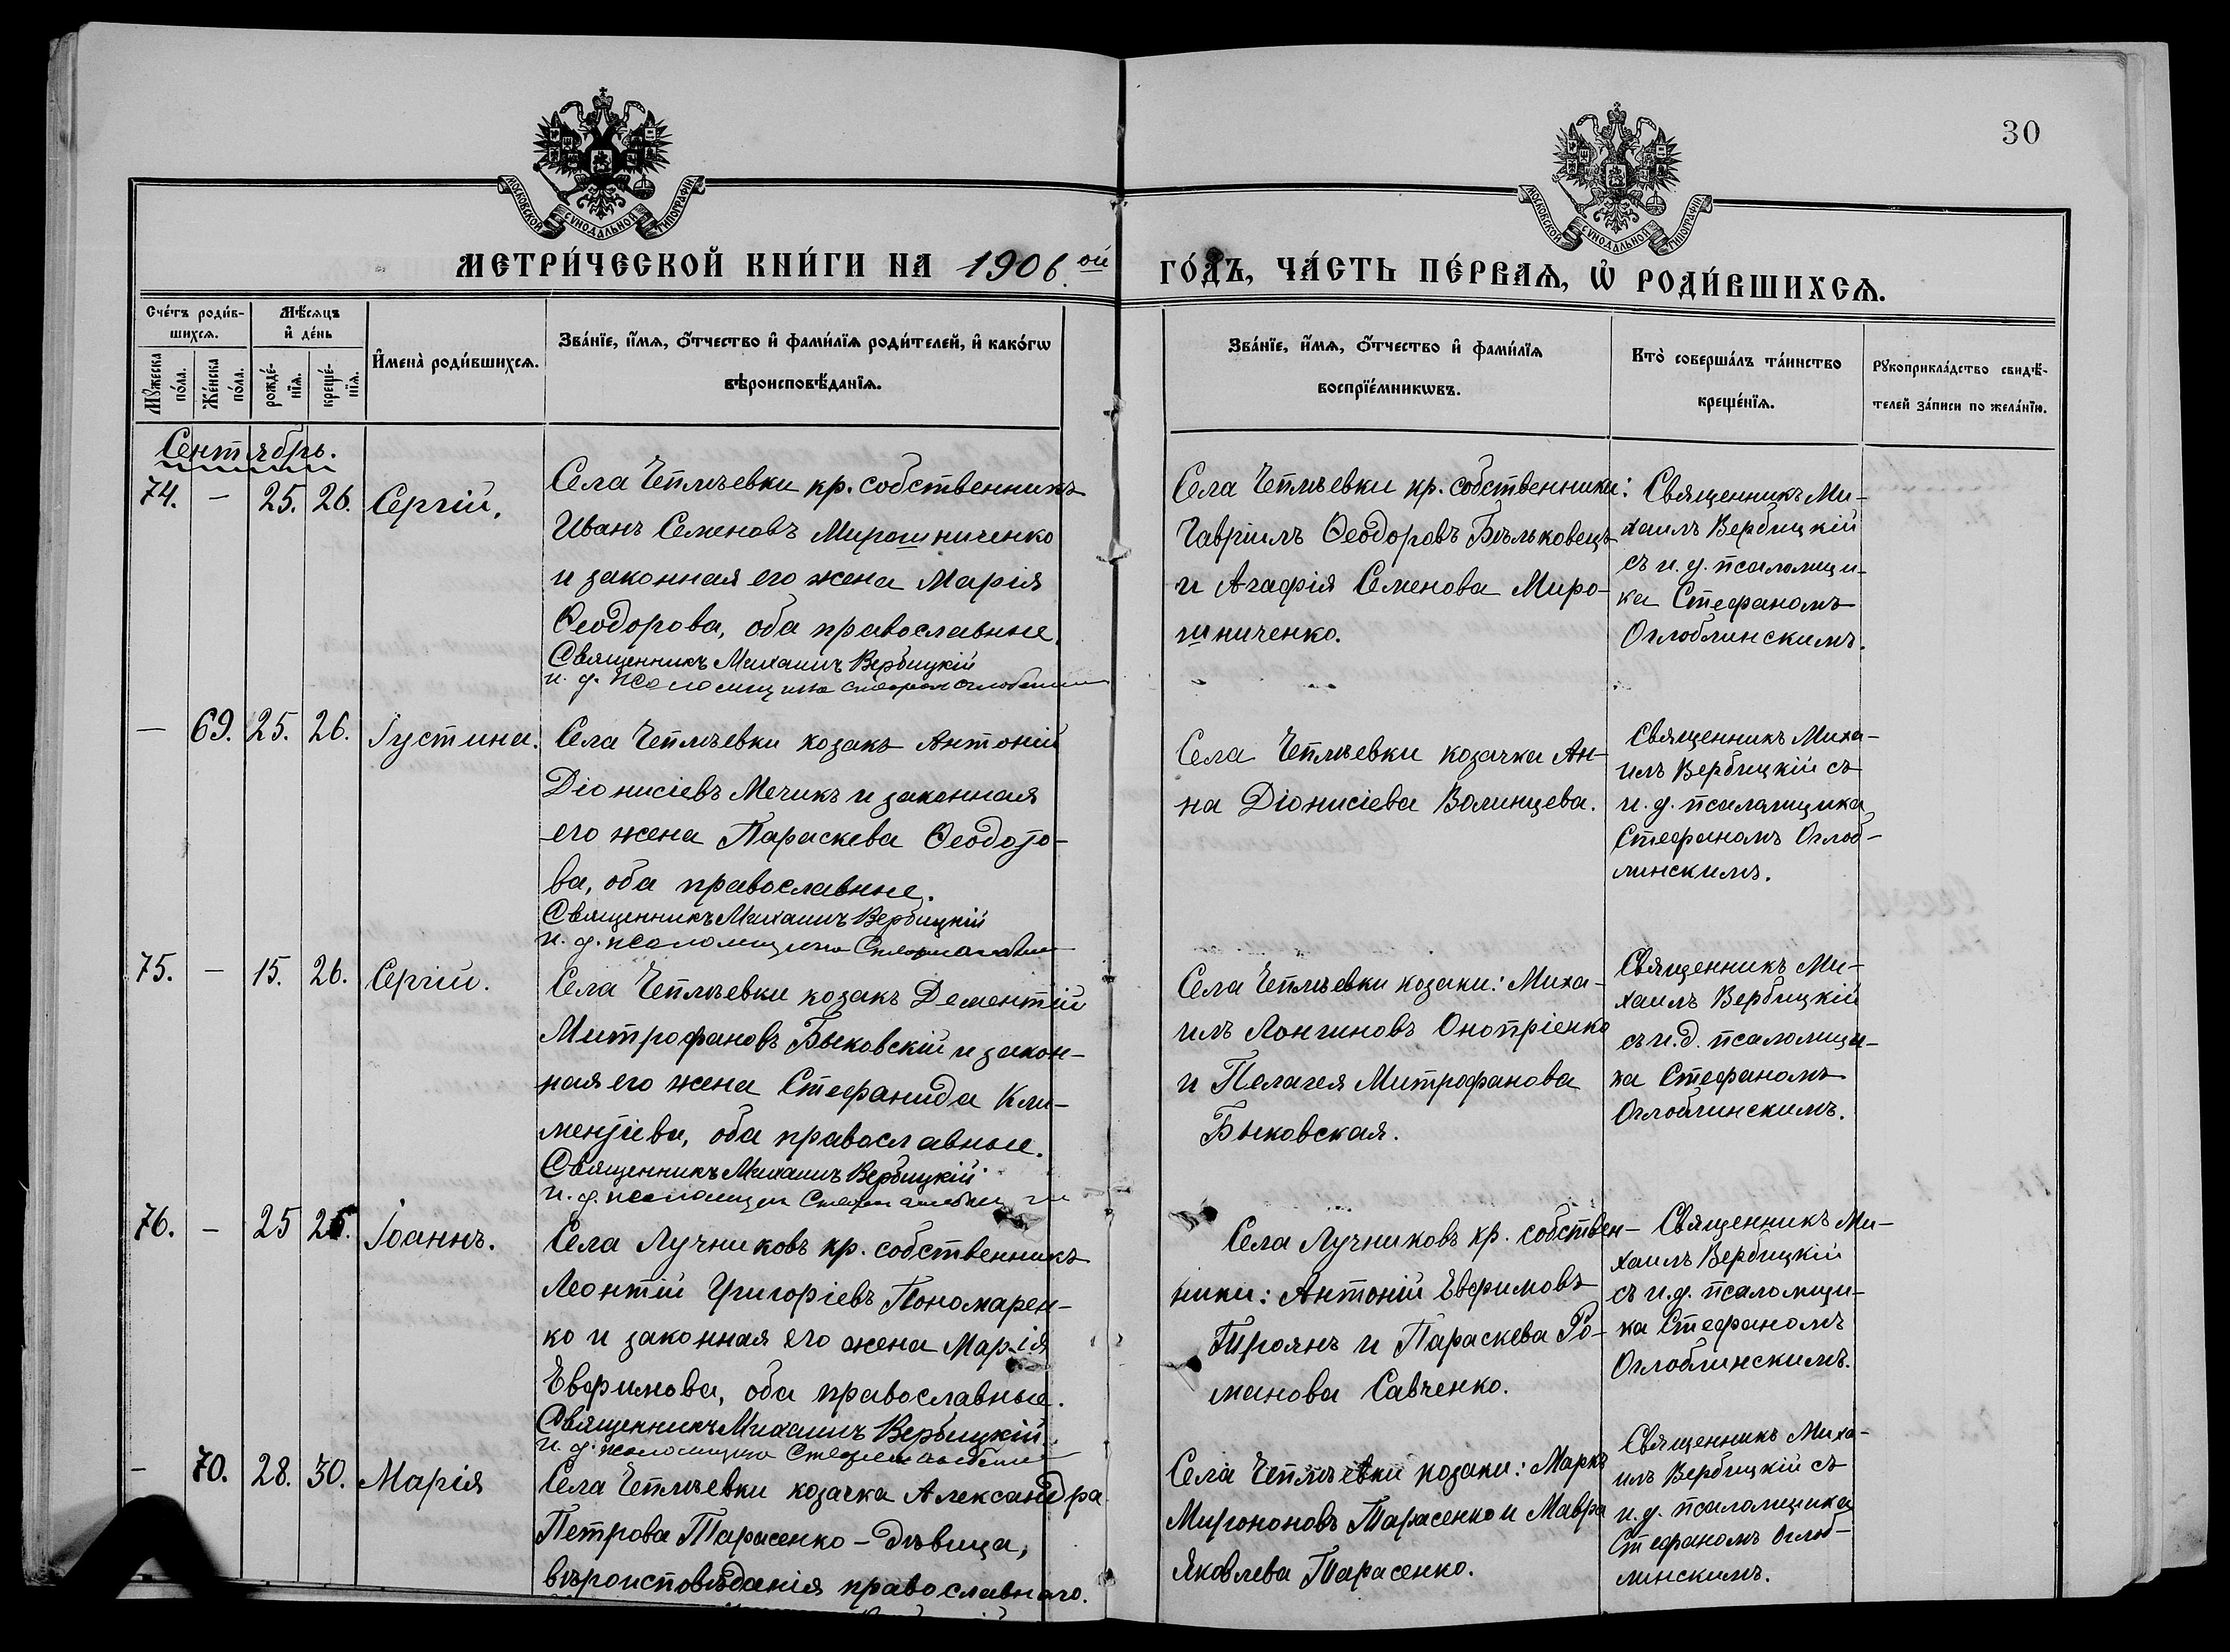 30
МОСКОВСКОЙ СѴНОДАЛЬНОЙ ТИПОГРАФІИ
МОСКОВСКОЙ СѴНОДАЛЬНОЙ ТИПОГРАФІИ
МЕТРИ́ЧЕСКОЙ КНИ́ГИ НА 1906.ой ГО́ДЪ, ЧА́СТЬ ПЕ́РВАѦ, Ѡ҆ РОДИ́ВШИХСѦ.
Сче́тъ роди́в-
шихсѧ.
Мꙋжеска по́ла.
Же́нска по́ла.
Мѣ́сѧцъ
и҆ де́нь
рожде́-
нїѧ.
креще́-
нїѧ.
И҆мена̀ роди́вшихсѧ.
Зва́нїе, и҆́мѧ, ѻ҆́тчество и҆ фами́лїѧ роди́телей, и҆ како́гѡ
вѣроисповѣ́данїѧ.
Зва́нїе, и҆́мѧ, ѻ҆́тчество и҆ фами́лїѧ
воспрїе́мникѡвъ.
Кто̀ соверша́лъ та́инство
креще́нїѧ.
Рꙋкоприкла́дство свидѣ́-
телей за́писи по жела́нїю.
Сентябрь.
74. – 25. 26. Сергій.
Села Чепіліевки кр. собственникъ
Иванъ Семеновъ Мирошниченко
и законная его жена Марія
Ѳеодорова, оба православные.
Священникъ Михаилъ Вербицкій
и. д. псаломщика Стефан
Села Чепіліевки кр. собственники:
Гавріилъ Ѳеодоровъ Бѣльковецъ
и Агафія Семенова Миро-
шниченко.
Священникъ Ми-
хаилъ Вербицкій
съ и. д. псаломщи-
ка Стефаномъ
Оглоблинскимъ.
– 69. 25. 26. Іустина.
Села Чепіліевки козакъ Антоній
Діонисіевъ Мечикъ и законная
его жена Параскева Ѳеодото-
ва, оба православные.
Священникъ Михаилъ Вербицкій
и. д. псаломщика
Села Чепіліевки козачка Ан-
на Діонисіева Волинцева.
Священникъ Миха-
илъ Вербицкій съ
и. д. псаломщика
Стефаномъ Оглоб-
линскимъ.
75. – 15. 26. Сергій.
Села Чепіліевки козакъ Дементій
Митрофановъ Быковскій и закон-
ная его жена Стефанида Кли-
ментіева, оба православные.
Священникъ Михаилъ Вербицкій
и. д. псаломщика
Села Чепіліевки козаки: Миха-
илъ Лонгиновъ Онопріенко
и Пелагея Митрофанова
Быковская.
Священникъ Ми-
хаилъ Вербицкій
съ и. д. псаломщи-
ка Стефаномъ
Оглоблинскимъ.
76. – 25 Іоаннъ.
Села Лучниковъ кр. собственникъ
Леонтій Григоріевъ Пономарен-
ко и законная его жена Марія
Евфимова, оба православные.
Священникъ Михаилъ Вербицкій
и. д. псаломщика
Села Лучниковъ кр. собствен-
ники: Антоній Евфимовъ
Троянъ и Параскева Ро-
манова Савченко.
Священникъ Ми-
хаилъ Вербицкій
съ и. д. псаломщи-
ка Стефаномъ
Оглоблинскимъ.
– 70. 28. 30. Марія
Села Чепіліевки козачка Александра
Петрова Тарасенко – дѣвица,
вѣроисповѣданія православнаго.
Села Чепіліевки козаки: Маркъ
Миронов Тарасенко и Мавра
Яковлева Тарасенко.
Священникъ Миха-
илъ Вербицкій съ
и. д. псаломщика
Стефаномъ Оглоб-
линскимъ.